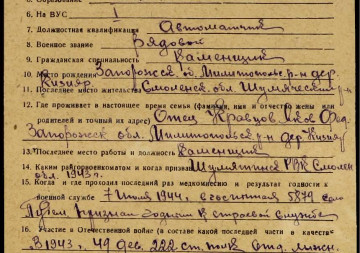 6. На ВУС I
7. Должностная квалификация Автоматчик
8. Военное звание Рядовой
9. Гражданская специальность Каменщик
10. Место рождения Запорожск. об. Милитопольс. р-н дер.
Кизияр
11. Последнее место жительства Смоленск. обл. Шумячский р-н
12. Где проживает в настоящее время семья (фамилия, имя и отчество жены или
родителя и точный их адрес) Отец Кравцов Яков
Запорожск обл. Милитопольс р-н дер Кизияр
13. Последнее место работы и должность Каменщик
14. Каким райгорвоенкоматом и когда призван Шумятским РВК Смолен
обл. 1943 г.
15. Когда и где проходил последний раз медкомиссию и результат годности к
военной службе 7 1944, 5879
признан годным к строевой службе
16. Участие в Отечественной войне (в составе какой последней части и в качестве
В 1943 г. 49 див. 222 стр. полк